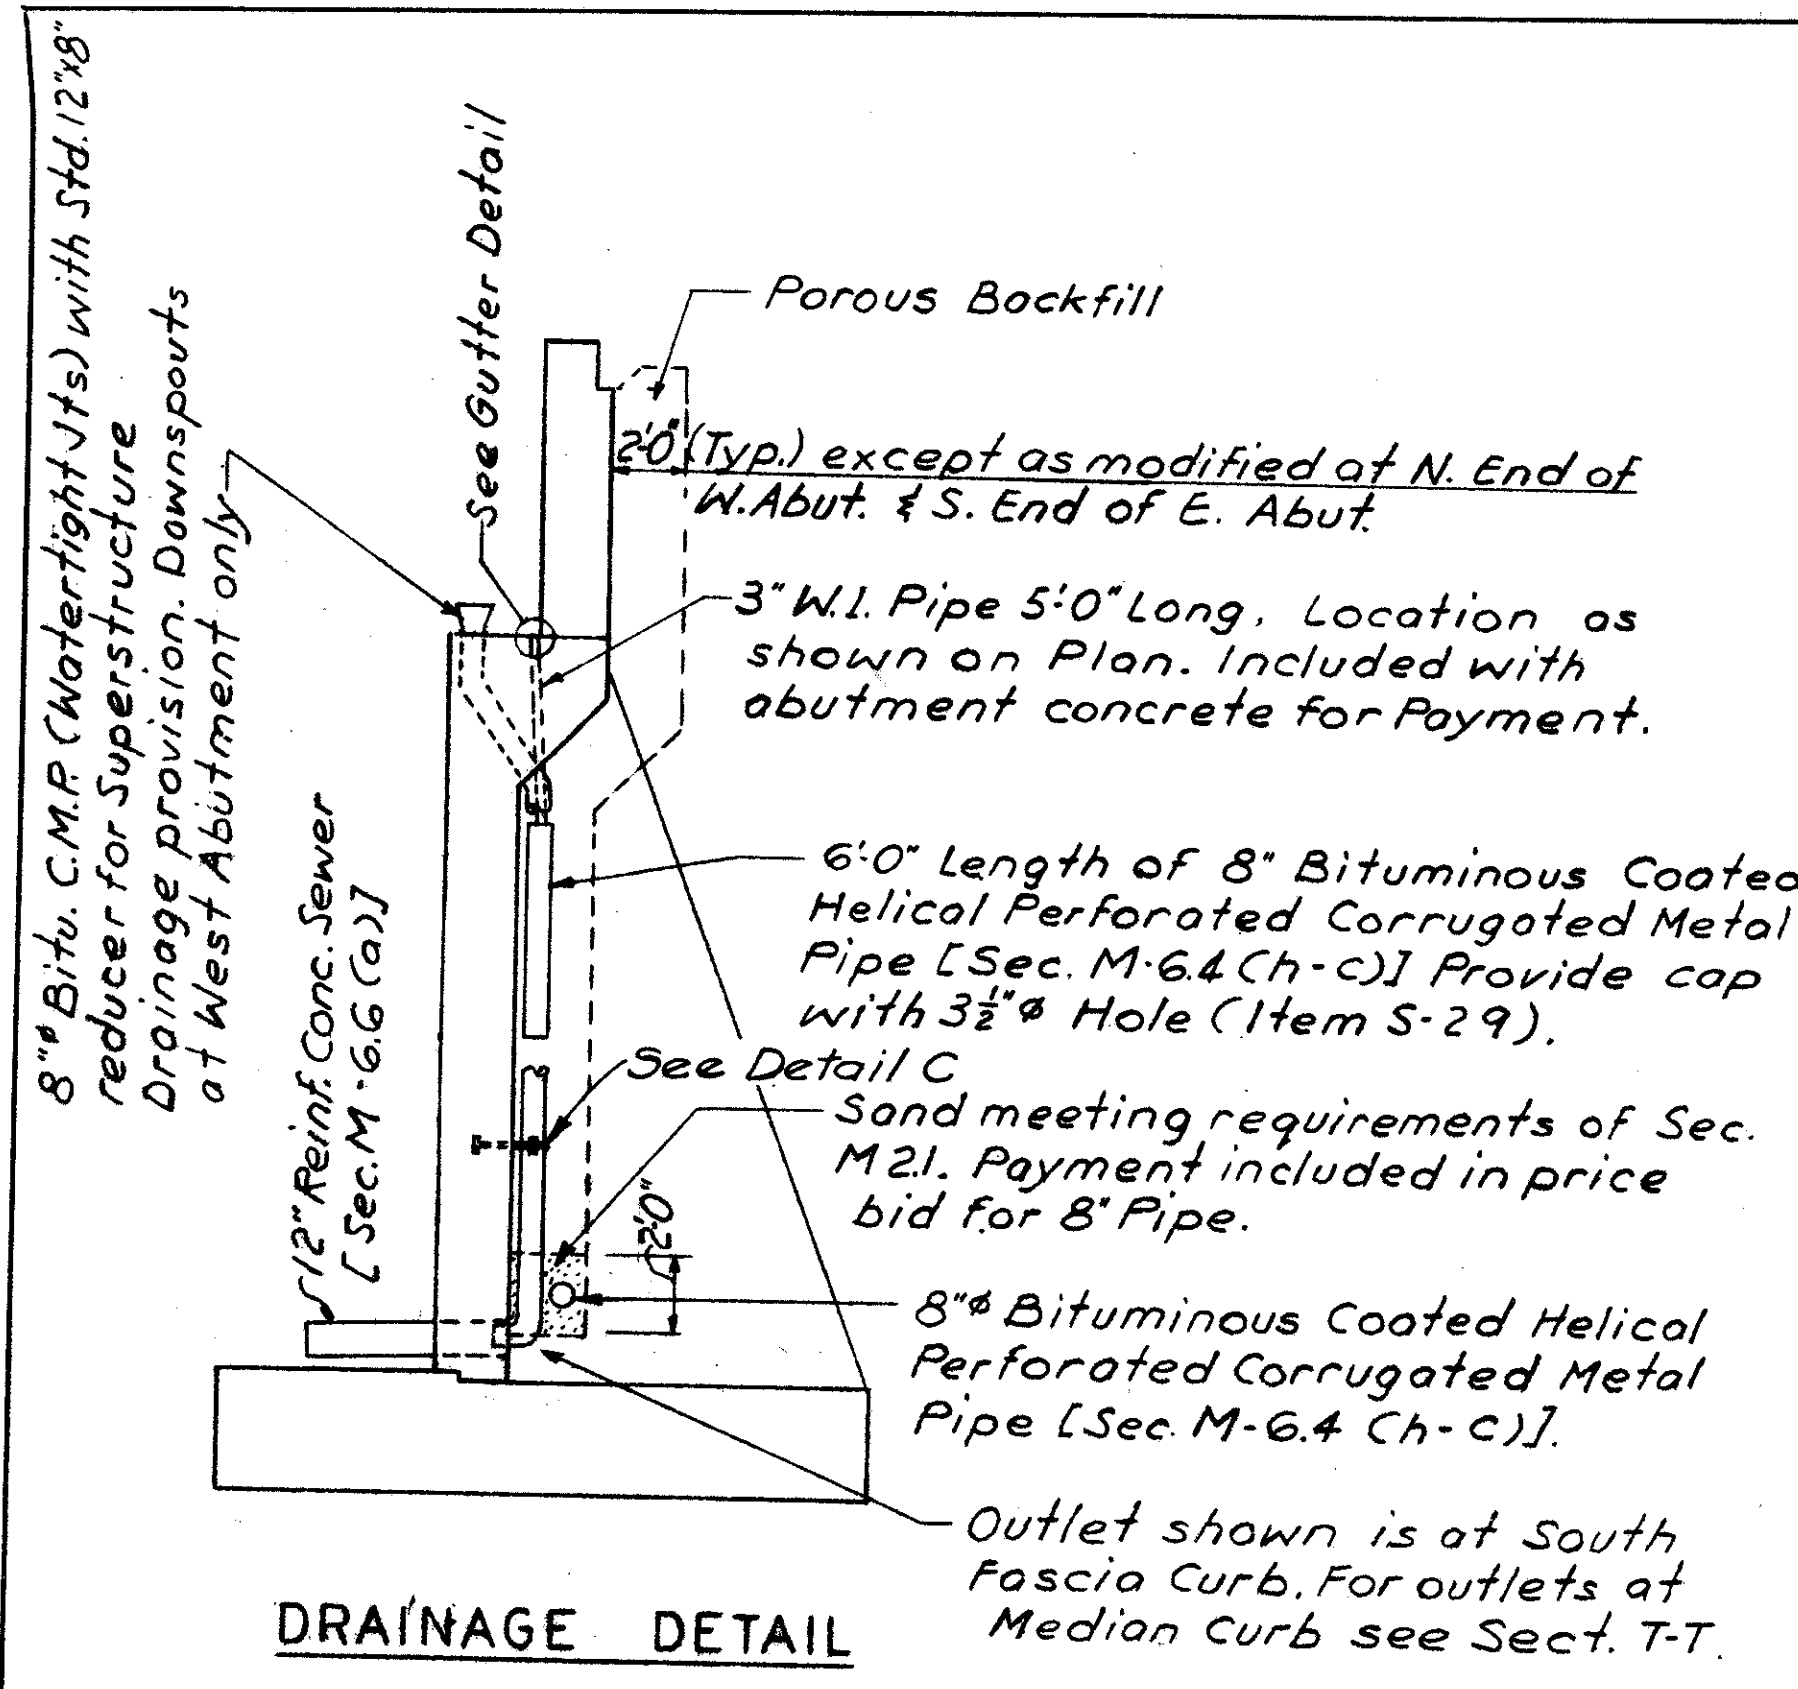 8"ø Bitu. C.M.P. (Watertight Jts) with Std. 12"x8"
reducer for Superstructure
Drainage provision. Downspouts
at West Abutment only
See Gutter Detail
Porous Backfill
2'-0" (Typ.) except as modified at N. End of
W. Abut. & S. End of E. Abut.
3" W.I. Pipe 5'-0" Long. Location as
shown on Plan. Included with
abutment concrete for Payment.
12" Reinf. Conc. Sewer
[Sec. M-6.6 (a)]
6'-0" Length of 8" Bituminous Coated
Helical Perforated Corrugated Metal
Pipe [Sec. M-6.4 (h-c)] Provide cap
with 3½"ø Hole (Item S-29).
See Detail C
Sand meeting requirements of Sec.
M 2.1. Payment included in price
bid for 8" Pipe.
2'-0"
8"ø Bituminous Coated Helical
Perforated Corrugated Metal
Pipe [Sec. M-6.4 (h-c)].
Outlet shown is at South
Fascia Curb. For outlets at
Median Curb see Sect. T-T.
DRAINAGE DETAIL